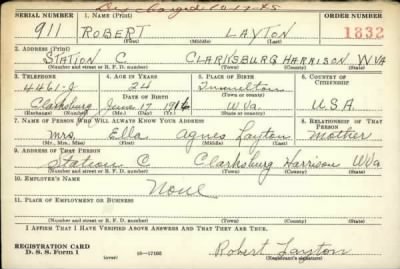 Discharged 10-17-45
SERIAL NUMBER 1. NAME (Print) ORDER NUMBER
911 ROBERT LAYTON 1832
(First) (Middle) (Last)
2. ADDRESS (Print)
STATION C CLARKSBURG HARRISON W.VA
(Number and street or R. F. D. number) (Town) (County) (State)
3. TELEPHONE 4. AGE IN YEARS 5. PLACE OF BIRTH 6. COUNTRY OF CITIZENSHIP
4461-J 24
DATE OF BIRTH (Town or county)
Clarksburg June 17 1916 W.Va. U.S.A
(Exchange) (Number) (Mo.) (Day) (Yr.) (State or country)
7. NAME OF PERSON WHO WILL ALWAYS KNOW YOUR ADDRESS 8. RELATIONSHIP OF THAT PERSON
Mrs. Ella Agnes Layton Mother
(Mr., Mrs., Miss) (First) (Middle) (Last)
9. ADDRESS OF THAT PERSON
Station C Clarksburg Harrison W.Va
(Number and street or R. F. D. number) (Town) (County) (State)
10. EMPLOYER'S NAME
None
11. PLACE OF EMPLOYMENT OR BUSINESS
(Number and street or R. F. D. number) (Town) (County) (State)
I AFFIRM THAT I HAVE VERIFIED ABOVE ANSWERS AND THAT THEY ARE TRUE.
REGISTRATION CARD
D. S. S. Form 1 16—17105 Robert Layton
(Registrant's signature)